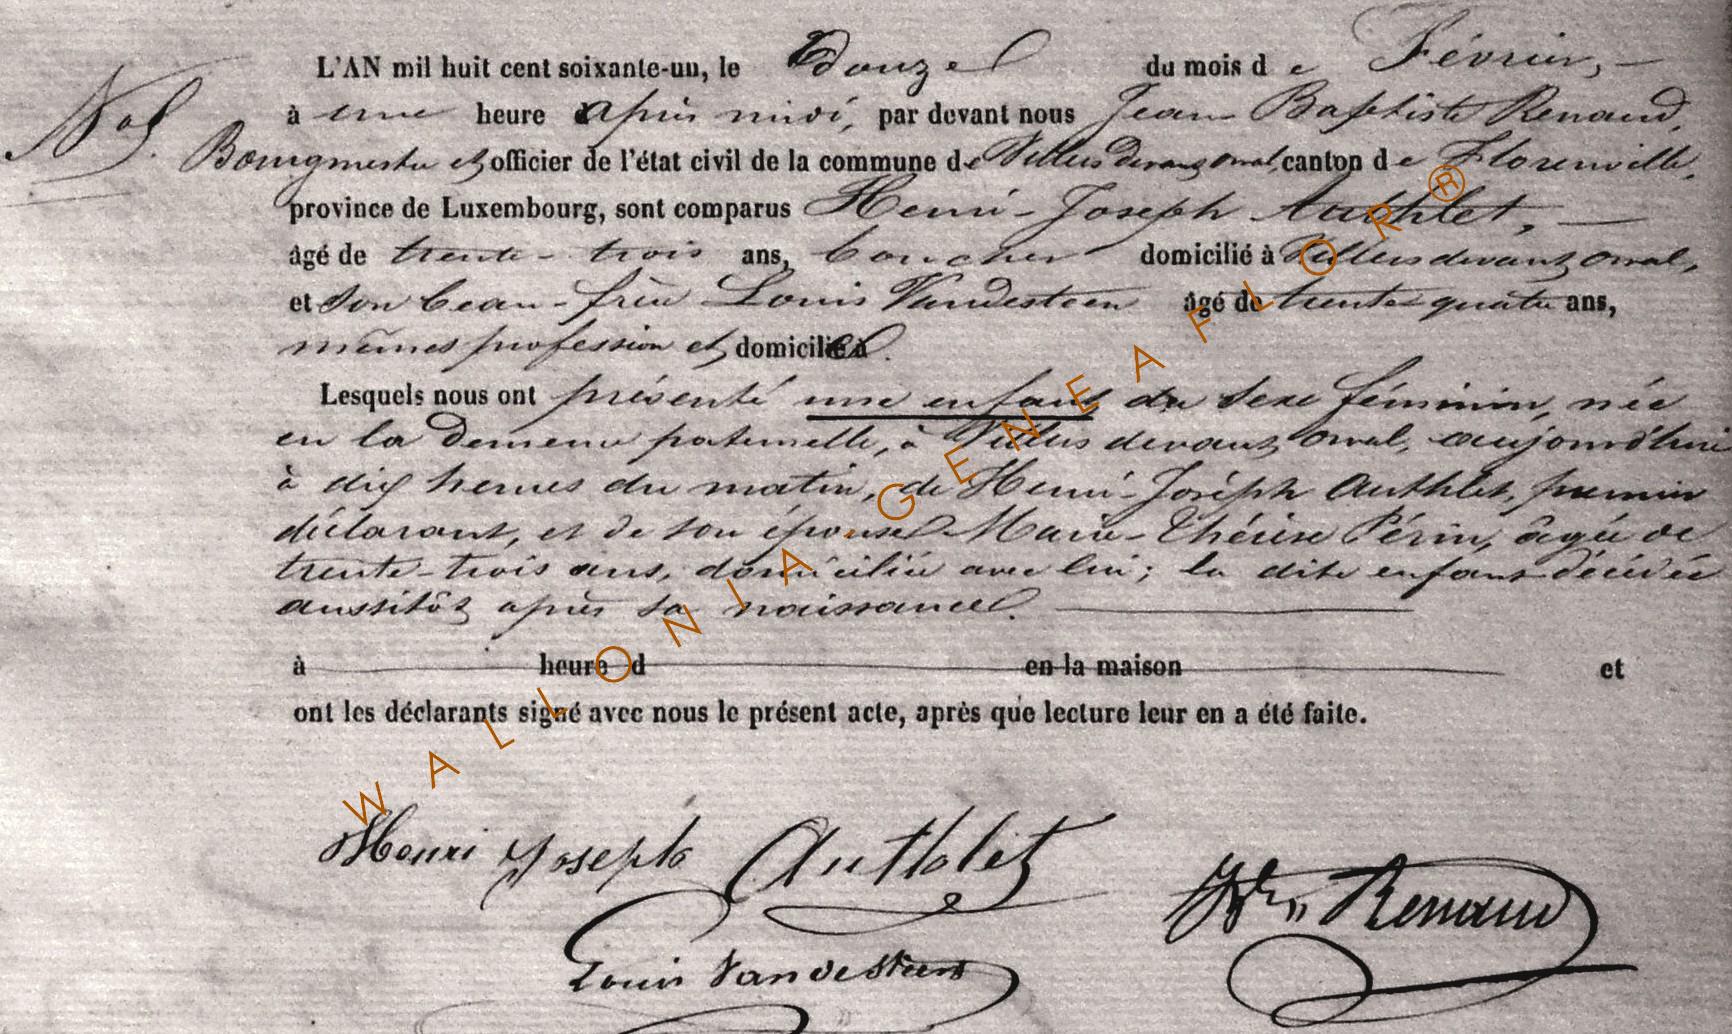 L'AN mil huit cent soixante-un, le Douze du mois de Février,
à une heure après midi, par devant nous Jean Baptiste Renaud,
Bourgmestre et officier de l'état civil de la commune de Villers devant orval, canton de Florenville,
province de Luxembourg, sont comparus Henri-Joseph Authlet,
âgé de trente-trois ans, boucher domicilié à Villers devant orval,
et son beau-frère Louis Vandesteen âgé de trente quatre ans,
mêmes profession et domicile.
Lesquels nous ont présenté une enfant du sexe féminin, née
en la demeure paternelle, à Villers devant orval, aujourd'hui
à dix heures du matin, de Henri-Joseph Authlet, premier
déclarant, et de son épouse Marie-Thérèse Périn, âgée de
trente-trois ans, domiciliée avec lui; la dite enfant décédée
aussitôt après sa naissance.
à heure d en la maison et
ont les déclarants signé avec nous le présent acte, après que lecture leur en a été faite.
Henri Joseph Authelet
Renaud
Louis Vandesteen
WALLONIA.GENEAFLOR®